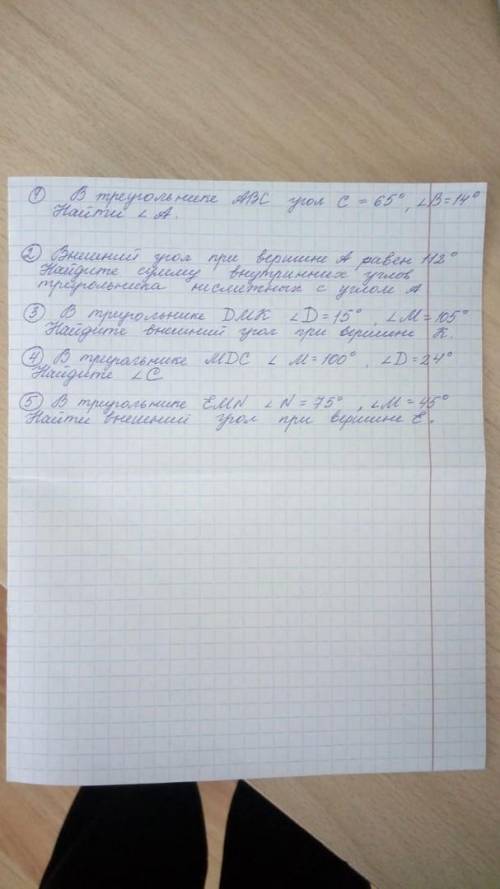 ① В треугольнике ABC угол C = 65°, ∠B=14°
Найти ∠A.
② Внешний угол при вершине A равен 112°
Найдите сумму внутринних углов
треугольника несмежных с углом A
③ В триугольнике DMK ∠D=15°, ∠M=105°
Найдите внешний угол при вершине K.
④ В триугольнике MDC ∠M=100°, ∠D=24°
Найдите ∠C
⑤ В триугольнике EMN ∠N=75°, ∠M=45°
Найти внешний угол при вершине E.